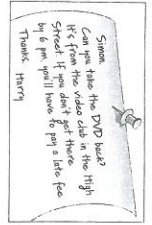 Simon
Can you take the DVD back?
It's from the video club in the High
Street. If you don't get there
by 6 pm you'll have to pay a late fee.
Thanks. Harry